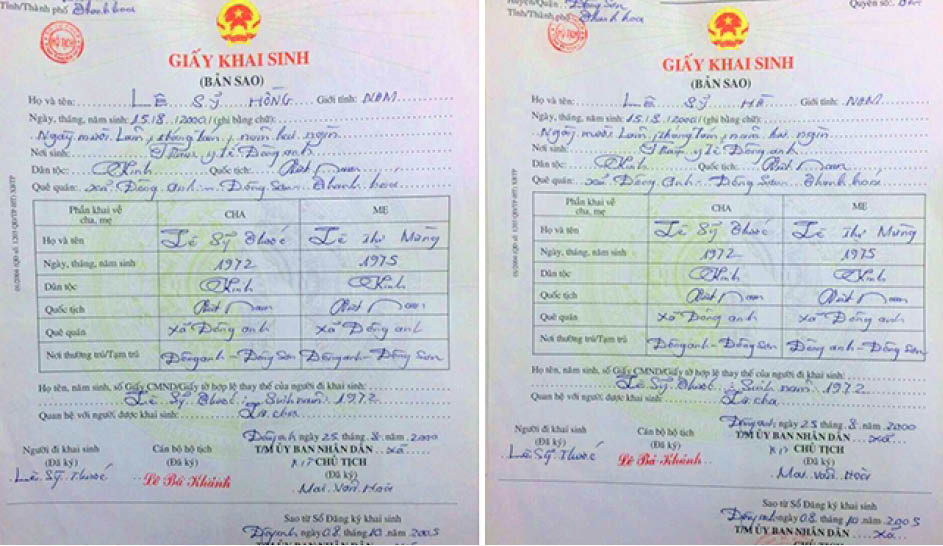 Tỉnh/Thành phố Thanh hoá
GIẤY KHAI SINH
(BẢN SAO)
Họ và tên: LÊ SỸ HỒNG Giới tính: NAM
Ngày, tháng, năm sinh: 15.18.12000 (ghi bằng chữ):
Ngày mười Lăm, tháng tám, năm hai ngàn
Nơi sinh: Trạm y tế Đông anh
Dân tộc: Kinh Quốc tịch: Việt Nam
Quê quán: xã Đông anh - Đông Sơn Thanh hoá
Phần khai về cha, mẹ CHA MẸ
Họ và tên Lê Sỹ Thước Lê Thị Mừng
Ngày, tháng, năm sinh 1972 1975
Dân tộc Kinh Kinh
Quốc tịch Việt Nam Việt Nam
Quê quán xã Đông anh xã Đông anh
Nơi thường trú/Tạm trú Đông anh - Đông Sơn Đông anh - Đông Sơn
Họ tên, năm sinh, số Giấy CMND/Giấy tờ hợp lệ thay thế của người đi khai sinh:
Lê Sỹ Thước; Sinh năm 1972
Quan hệ với người được khai sinh: Là cha
Đông anh ngày 25 tháng 8 năm 2000
T/M ỦY BAN NHÂN DÂN xã
Người đi khai sinh Cán bộ hộ tịch CHỦ TỊCH
(Đã ký) (Đã ký) (Đã ký)
Lê Sỹ Thước Lê Bá Khánh Mai Văn Hoà
Sao từ Sổ Đăng ký khai sinh
Đông anh ngày 08 tháng 10 năm 2005
T/M ỦY BAN NHÂN DÂN
Huyện/Quận Đông Sơn
Tỉnh/Thành phố Thanh hoá
Quyển số:
GIẤY KHAI SINH
(BẢN SAO)
Họ và tên: LÊ SỸ HÀ Giới tính: NAM
Ngày, tháng, năm sinh: 15.18.12000 (ghi bằng chữ):
Ngày mười Lăm, tháng tám, năm hai ngàn
Nơi sinh: Trạm y tế Đông anh
Dân tộc: Kinh Quốc tịch: Việt Nam
Quê quán: xã Đông Anh - Đông Sơn Thanh hoá
Phần khai về cha, mẹ CHA MẸ
Họ và tên Lê Sỹ Thước Lê Thị Mừng
Ngày, tháng, năm sinh 1972 1975
Dân tộc Kinh Kinh
Quốc tịch Việt Nam Việt Nam
Quê quán xã Đông anh xã Đông anh
Nơi thường trú/Tạm trú Đông anh - Đông Sơn Đông anh - Đông Sơn
Họ tên, năm sinh, số Giấy CMND/Giấy tờ hợp lệ thay thế của người đi khai sinh:
Lê Sỹ Thước; Sinh năm 1972
Quan hệ với người được khai sinh: Là cha
Đông anh, ngày 25 tháng 8 năm 2000
T/M ỦY BAN NHÂN DÂN xã
Người đi khai sinh Cán bộ hộ tịch CHỦ TỊCH
(Đã ký) (Đã ký) (Đã ký)
Lê Sỹ Thước Lê Bá Khánh Mai Văn Hoà
Sao từ Sổ Đăng ký khai sinh
Đông anh ngày 08 tháng 10 năm 2005
T/M ỦY BAN NHÂN DÂN xã